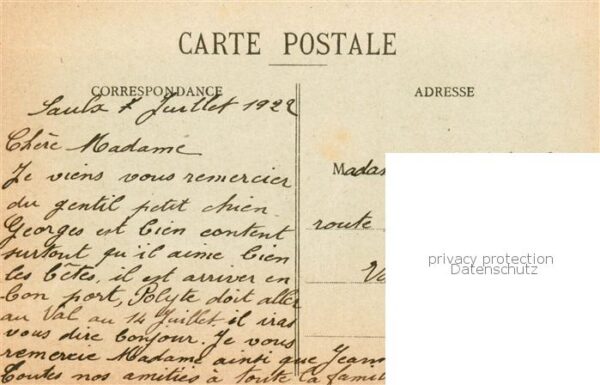 CARTE POSTALE
CORRESPONDANCE
ADRESSE
Saulx 7 Juillet 1922
Chère Madame
Je viens vous remercier
du gentil petit chien.
Georges est bien content
surtout qu'il aime bien
les bêtes, il est arriver en
bon port, Polyte doit aller
au Val au 14 Juillet il iras
vous dire bonjour. Je vous
remercie Madame ainsi que Jeann
Toutes nos amitiés à toute la famil
Madas
route
Va
privacy protection
Datenschutz